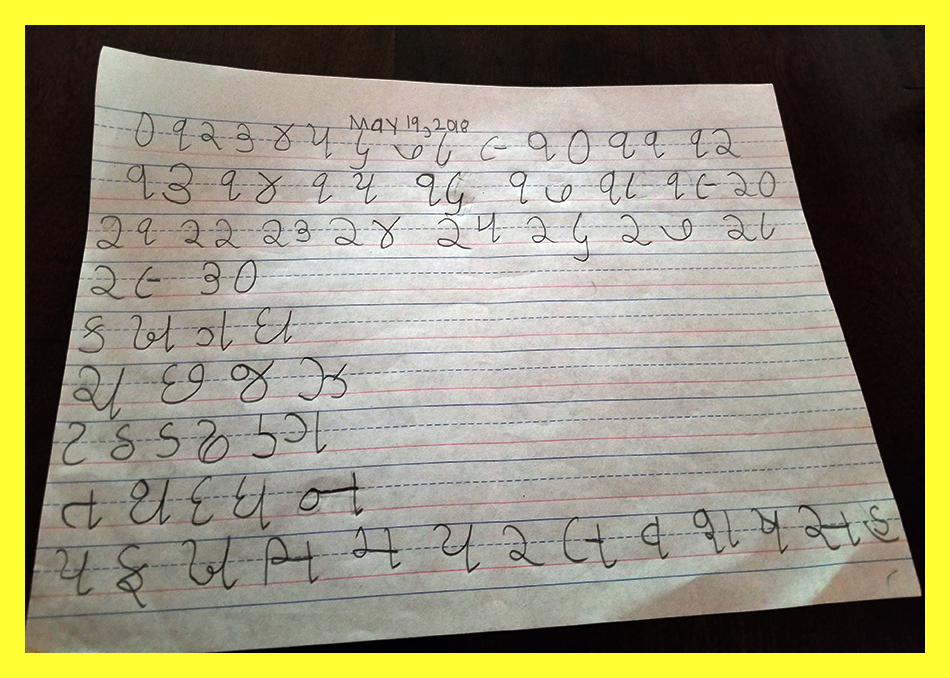 May 19, 2018
૦ ૧ ૨ ૩ ૪ ૫ ૬ ૭ ૮ ૯ ૧૦ ૧૧ ૧૨
૧૩ ૧૪ ૧૫ ૧૬ ૧૭ ૧૮ ૧૯ ૨૦
૨૧ ૨૨ ૨૩ ૨૪ ૨૫ ૨૬ ૨૭ ૨૮
૨૯ ૩૦
ક ખ ગ ઘ
ચ છ જ ઝ
ટ ઠ ડ ઢ ણ
ત થ દ ધ ન
પ ફ બ ભ મ ય ર લ વ શ ષ સ હ